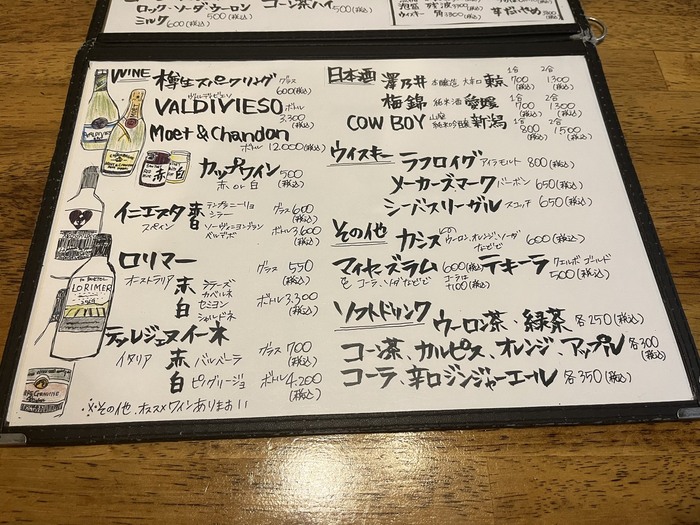 ロック・ソーダ・ウーロン 500(税込)
ミルク 600(税込)
コーン茶ハイ 500(税込)
WINE 樽生スパークリング グラス 600(税込)
VALDIVIESO ボトル 3,300(税込)
Moet & Chandon ボトル 12,000(税込)
カップワイン 500(税込)
赤 or 白
イニエスタ 赤 テンプラニーリョ シラー グラス 600(税込)
スペイン 白 ボトル 3,600(税込)
ロリマー グラス 550(税込)
オーストラリア
赤 シラーズ カベルネ ボトル 3,300(税込)
白 セミヨン シャルドネ
イタリア 赤 バルベーラ グラス 700(税込)
白 ピノグリージョ ボトル 4,200(税込)
※その他、オススメワインあります!!
日本酒 澤乃井 本醸造 大辛口 東京 1合 700(税込) 2合 1300(税込)
梅錦 純米酒 愛媛 1合 700(税込) 2合 1300(税込)
COW BOY 山廃 純米吟醸 新潟 1合 800(税込) 2合 1500(税込)
ウィスキー ラフロイグ アイラモルト 800(税込)
メーカーズマーク バーボン 650(税込)
シーバスリーガル スコッチ 650(税込)
その他 カシス ウーロン、オレンジ、ソーダなどで 600(税込)
マイヤーズラム 600(税込) テキーラ クエルボ ゴールド 500(税込)
を コーラ、ソーダなどで コーラは+100(税込)
ソフトドリンク ウーロン茶、緑茶 各250(税込)
コーン茶、カルピス、オレンジ、アップル 各300(税込)
コーラ、辛口ジンジャーエール 各350(税込)
LORIMER